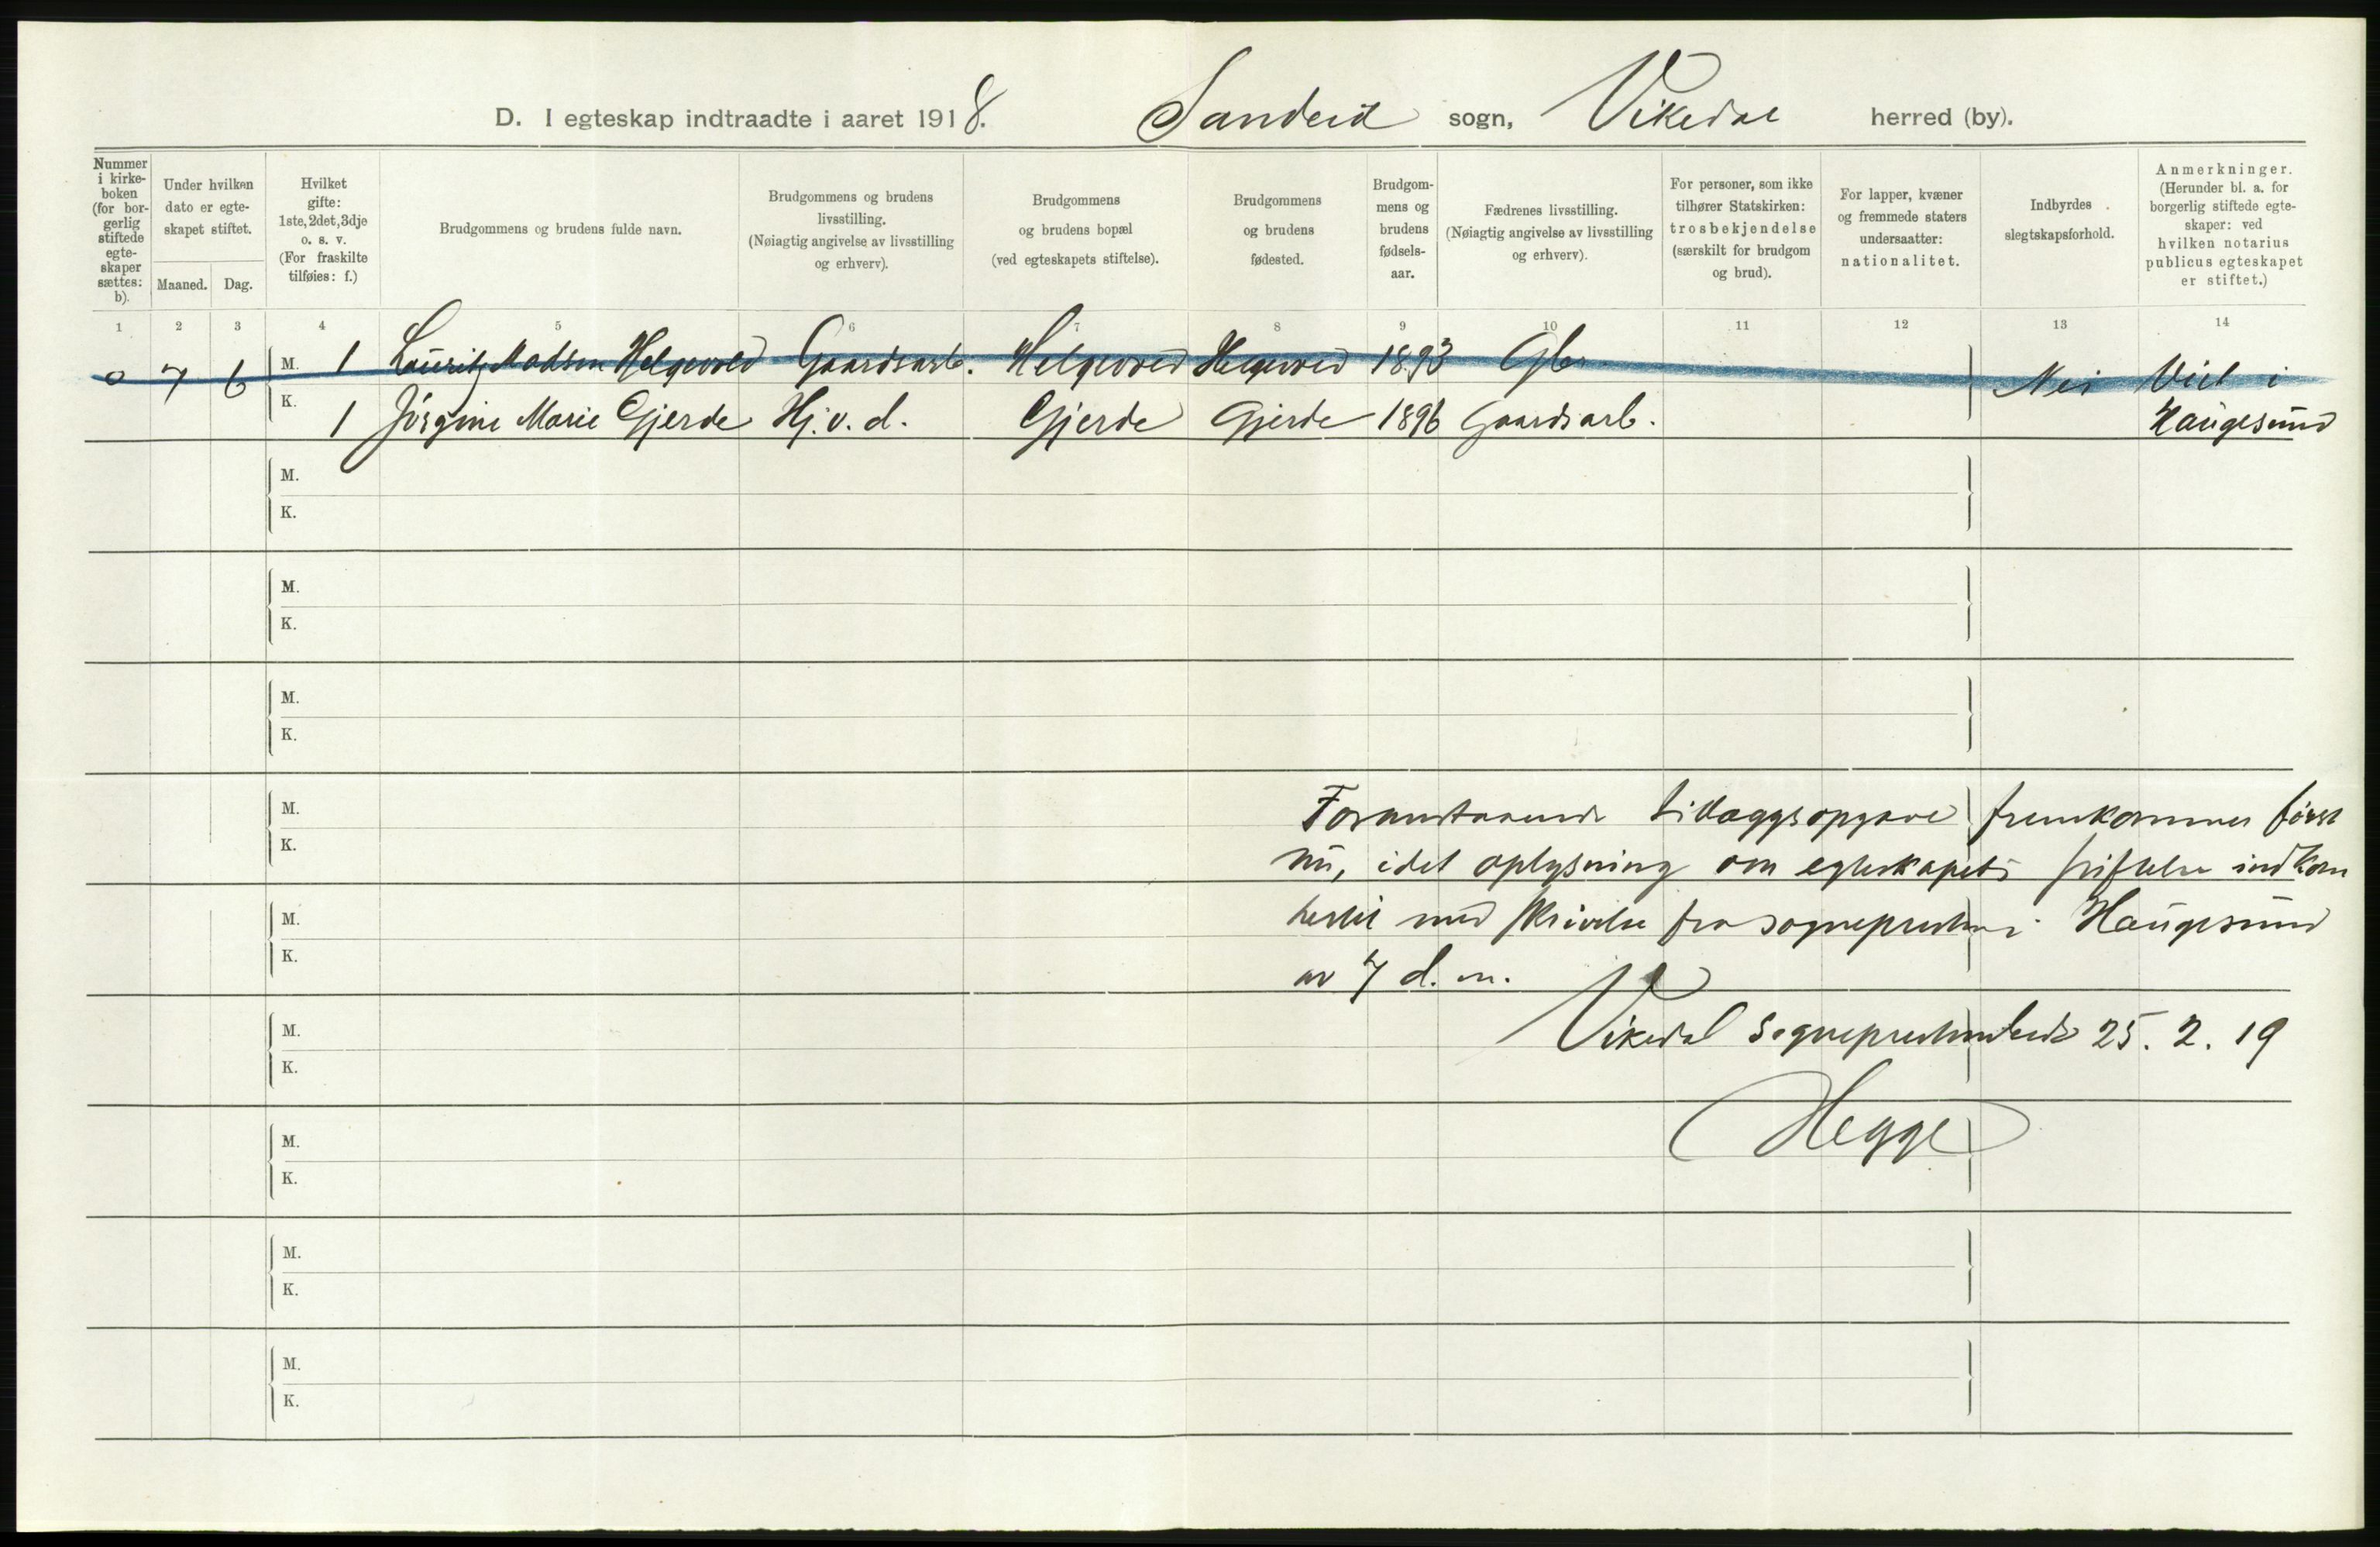 D. I egteskap indtraadte i aaret 1918. Sandeid sogn, Vikedal herred (by).
Nummer i kirke-boken (for bor-gerlig stiftede egte-skaper sættes: b).
Under hvilken dato er egte-skapet stiftet.
Maaned. Dag.
Hvilket gifte: 1ste, 2det, 3dje o. s. v. (For fraskilte tilføies: f.)
Brudgommens og brudens fulde navn.
Brudgommens og brudens livsstilling. (Nøiagtig angivelse av livsstilling og erhverv).
Brudgommens og brudens bopæl (ved egteskapets stiftelse).
Brudgommens og brudens fødested.
Brudgom-mens og brudens fødsels-aar.
Fædrenes livsstilling. (Nøiagtig angivelse av livsstilling og erhverv).
For personer, som ikke tilhører Statskirken: trosbekjendelse (særskilt for brudgom og brud).
For lapper, kvæner og fremmede staters undersaatter: nationalitet.
Indbyrdes slegtskapsforhold.
Anmerkninger. (Herunder bl. a. for borgerlig stiftede egte-skaper: ved hvilken notarius publicus egteskapet er stiftet.)
1 2 3 4 5 6 7 8 9 10 11 12 13 14
0 7 6 M. 1 Lauritz Madsen Helgevold Gaardsarb. Helgevold Helgevold 1893 Gbr. Nei Viet i
K. 1 Jörgine Marie Gjerde Hj. v. d. Gjerde Gjerde 1896 Gaardsarb. Haugesund
M.
K.
M.
K.
M.
K.
M.
K.
M.
K.
M.
K.
M.
K.
M.
K.
M.
K.
Foranstaaende tillægsopgave fremkommer först
nu, idet oplysning om egteskapets stiftelse indkom
hertil med skrivelse fra sognepresten i Haugesund
av 7 d. m.
Vikedal sogneprestembede 25. 2. 19
Hegge